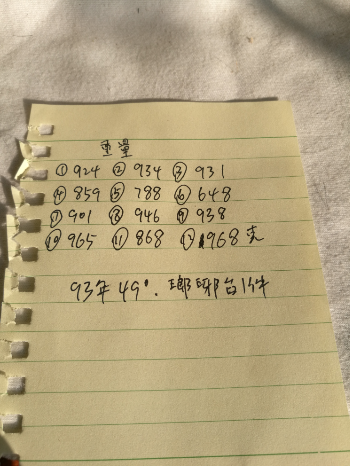 重量
①924 ②934 ③931
④859 ⑤788 ⑥648
⑦901 ⑧946 ⑨938
⑩965 ⑪868 ⑫968克
93年49°.瑯琊台1件